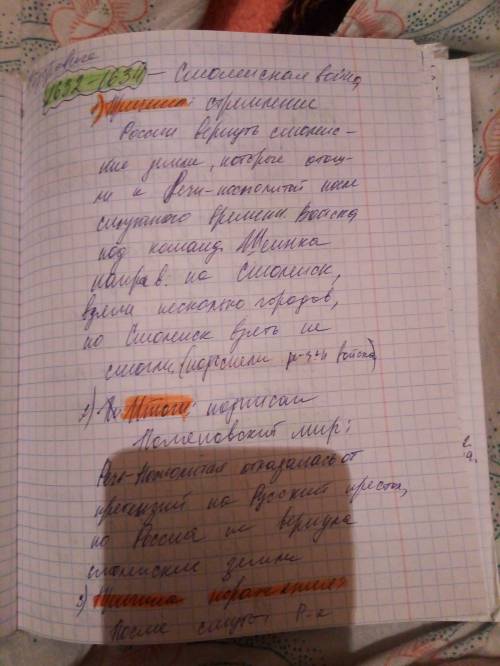 1632-1634 - Смоленская война
1) Причина: стремление
России вернуть смоленс-
кие земли, которые отош-
ли к Речи-посполитой после
смутного времени. Войска
под команд. Шеина
направ. на Смоленск,
взяли несколько городов,
но Смоленск взять не
смогли (подоспели войска)
2) Итоги: подписан
Поляновский мир:
Речь-Посполитая отказалась от
претензий на Русский престол,
но Россия не вернула
смоленские земли
3) Причина поражения:
После смуты Р-я